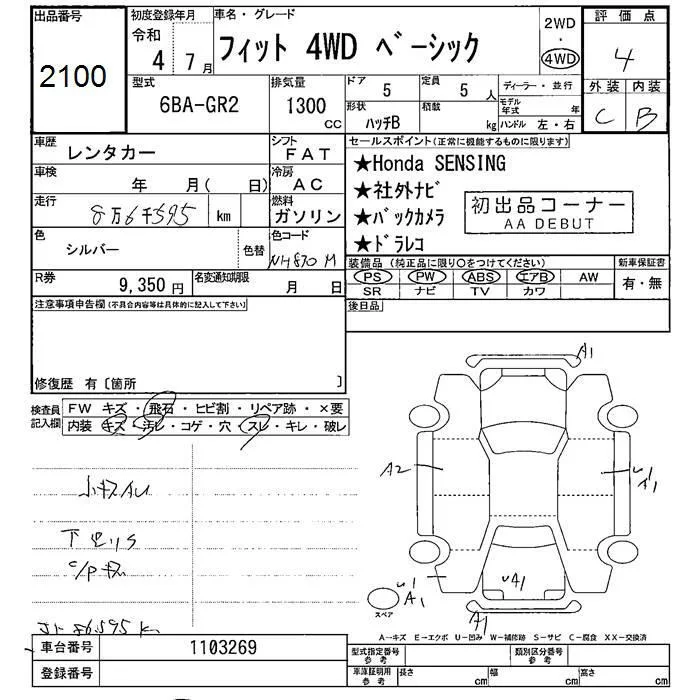 出品番号
2100
初度登録年月
令和
4 7月
車名・グレード
フィット 4WD ベーシック
2WD
・
4WD
評価点
4
外装 内装
C B
型式
6BA-GR2
排気量
1300
CC
ドア
5
定員
5 人
形状
ハッチB
積載
kg
ディーラー・並行
モデル年式 年
ハンドル 左・右
車歴
レンタカー
シフト
FAT
車検
年 月( 日)
冷房
AC
走行
8万6千595 km
燃料
ガソリン
色
シルバー
色替
色コード
NH870M
R券
9,350円
名変通知期限
月 日
セールスポイント(正常に機能するものに限ります)
★Honda SENSING
★社外ナビ
★バックカメラ
★ドラレコ
初出品コーナー
AA DEBUT
装備品(純正品に限り○をつけてください)
新車保証書
PS PW ABS エアB AW
SR ナビ TV カワ
有・無
後日品
注意事項申告欄(不具合内容等は具体的に記入して下さい)
修復歴 有〔箇所 〕
検査員記入欄
FW キズ・飛石・ヒビ割・リペア跡・×要
内装 キズ・汚レ・コゲ・穴・スレ・キレ・破レ
小キズAU
下廻りS
C/Pキズ
86595K
A1
A2
U1
A1
U1
A1
UA1
A1
スペア
A―キズ E―エクボ U―凹み W―補修跡 S―サビ C―腐食 XX―交換済
車台番号
1103269
登録番号
型式指定番号
参考
類別区分番号
参考
車庫証明用
参考
長さ cm
幅 cm
高さ cm